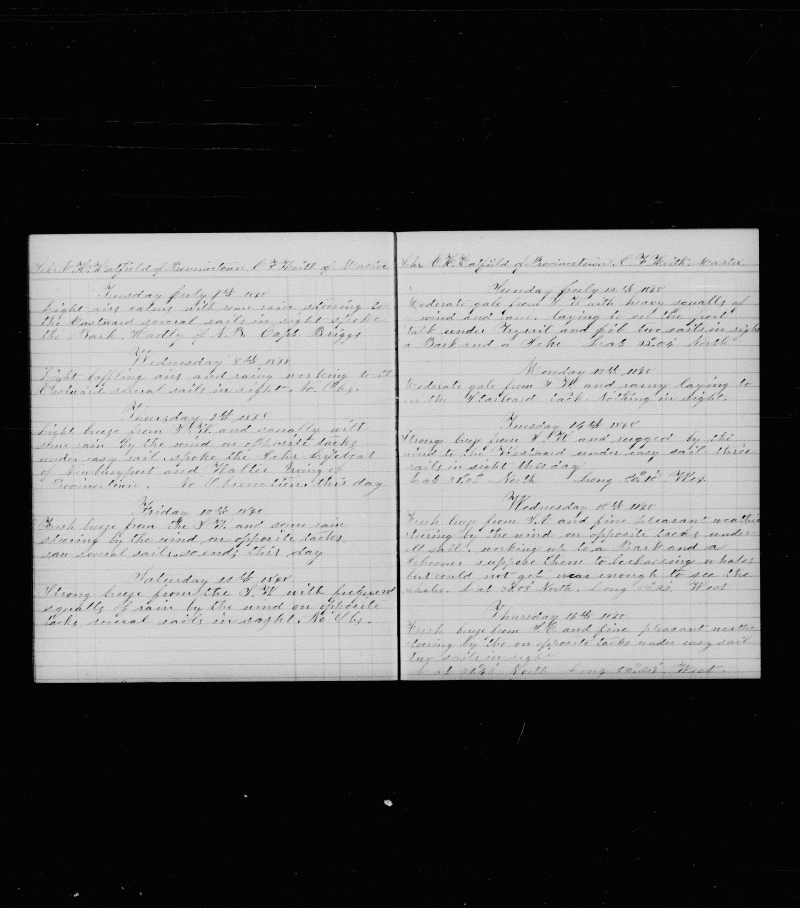 Schr. Hatfield of Provincetown. C F Keith Master
Tuesday July 1868
Light airs calms with some rain steering to
the Eastward several sails in sight spoke
the Bark of N. B. Capt Briggs
Wednesday 8th 1868
Light baffling airs and rainy working to
Westward several sails in sight. No Obs.
Thursday 9th 1868
Light breeze from and squally with
some rain by the wind on opposite tacks
under easy sail. spoke the Schr
of Newburyport and Hattie of
Provincetown. No Observation this day
Friday 10th 1868
Fresh breeze from the and some rain
steering by the wind on opposite tacks
saw several sails. so ends this day
Saturday 11th 1868
Strong breeze from the with frequent
squalls of rain by the wind on opposite
tacks several sails in sight. No Obs.
Schr Hatfield of Provincetown. C F Keith. Master
Sunday July 12th 1868
Moderate gale from with heavy squalls of
wind and rain. laying to on the port
tack under Trysail and jib two sails in sight
a Bark and a Schr Lat North
Monday 13th 1868
Moderate gale from and rainy laying to
on the Starboard tack Nothing in sight.
Tuesday 14th 1868
Strong breeze from and rugged by the
wind to the Westward under easy sail three
sails in sight this day
Lat North Long West
Wednesday 15th 1868
Fresh breeze from and fine pleasant weather
steering by the wind on opposite tacks under
all sail. working up to a Bark and a
Schooner suppose them to be chasing whales
but could not get near enough to see the
whales. Lat North. Long West
Thursday 16th 1868
Fresh breeze from and fine pleasant weather
steering by the on opposite tacks under easy sail
two sails in sight
Lat North Long West.